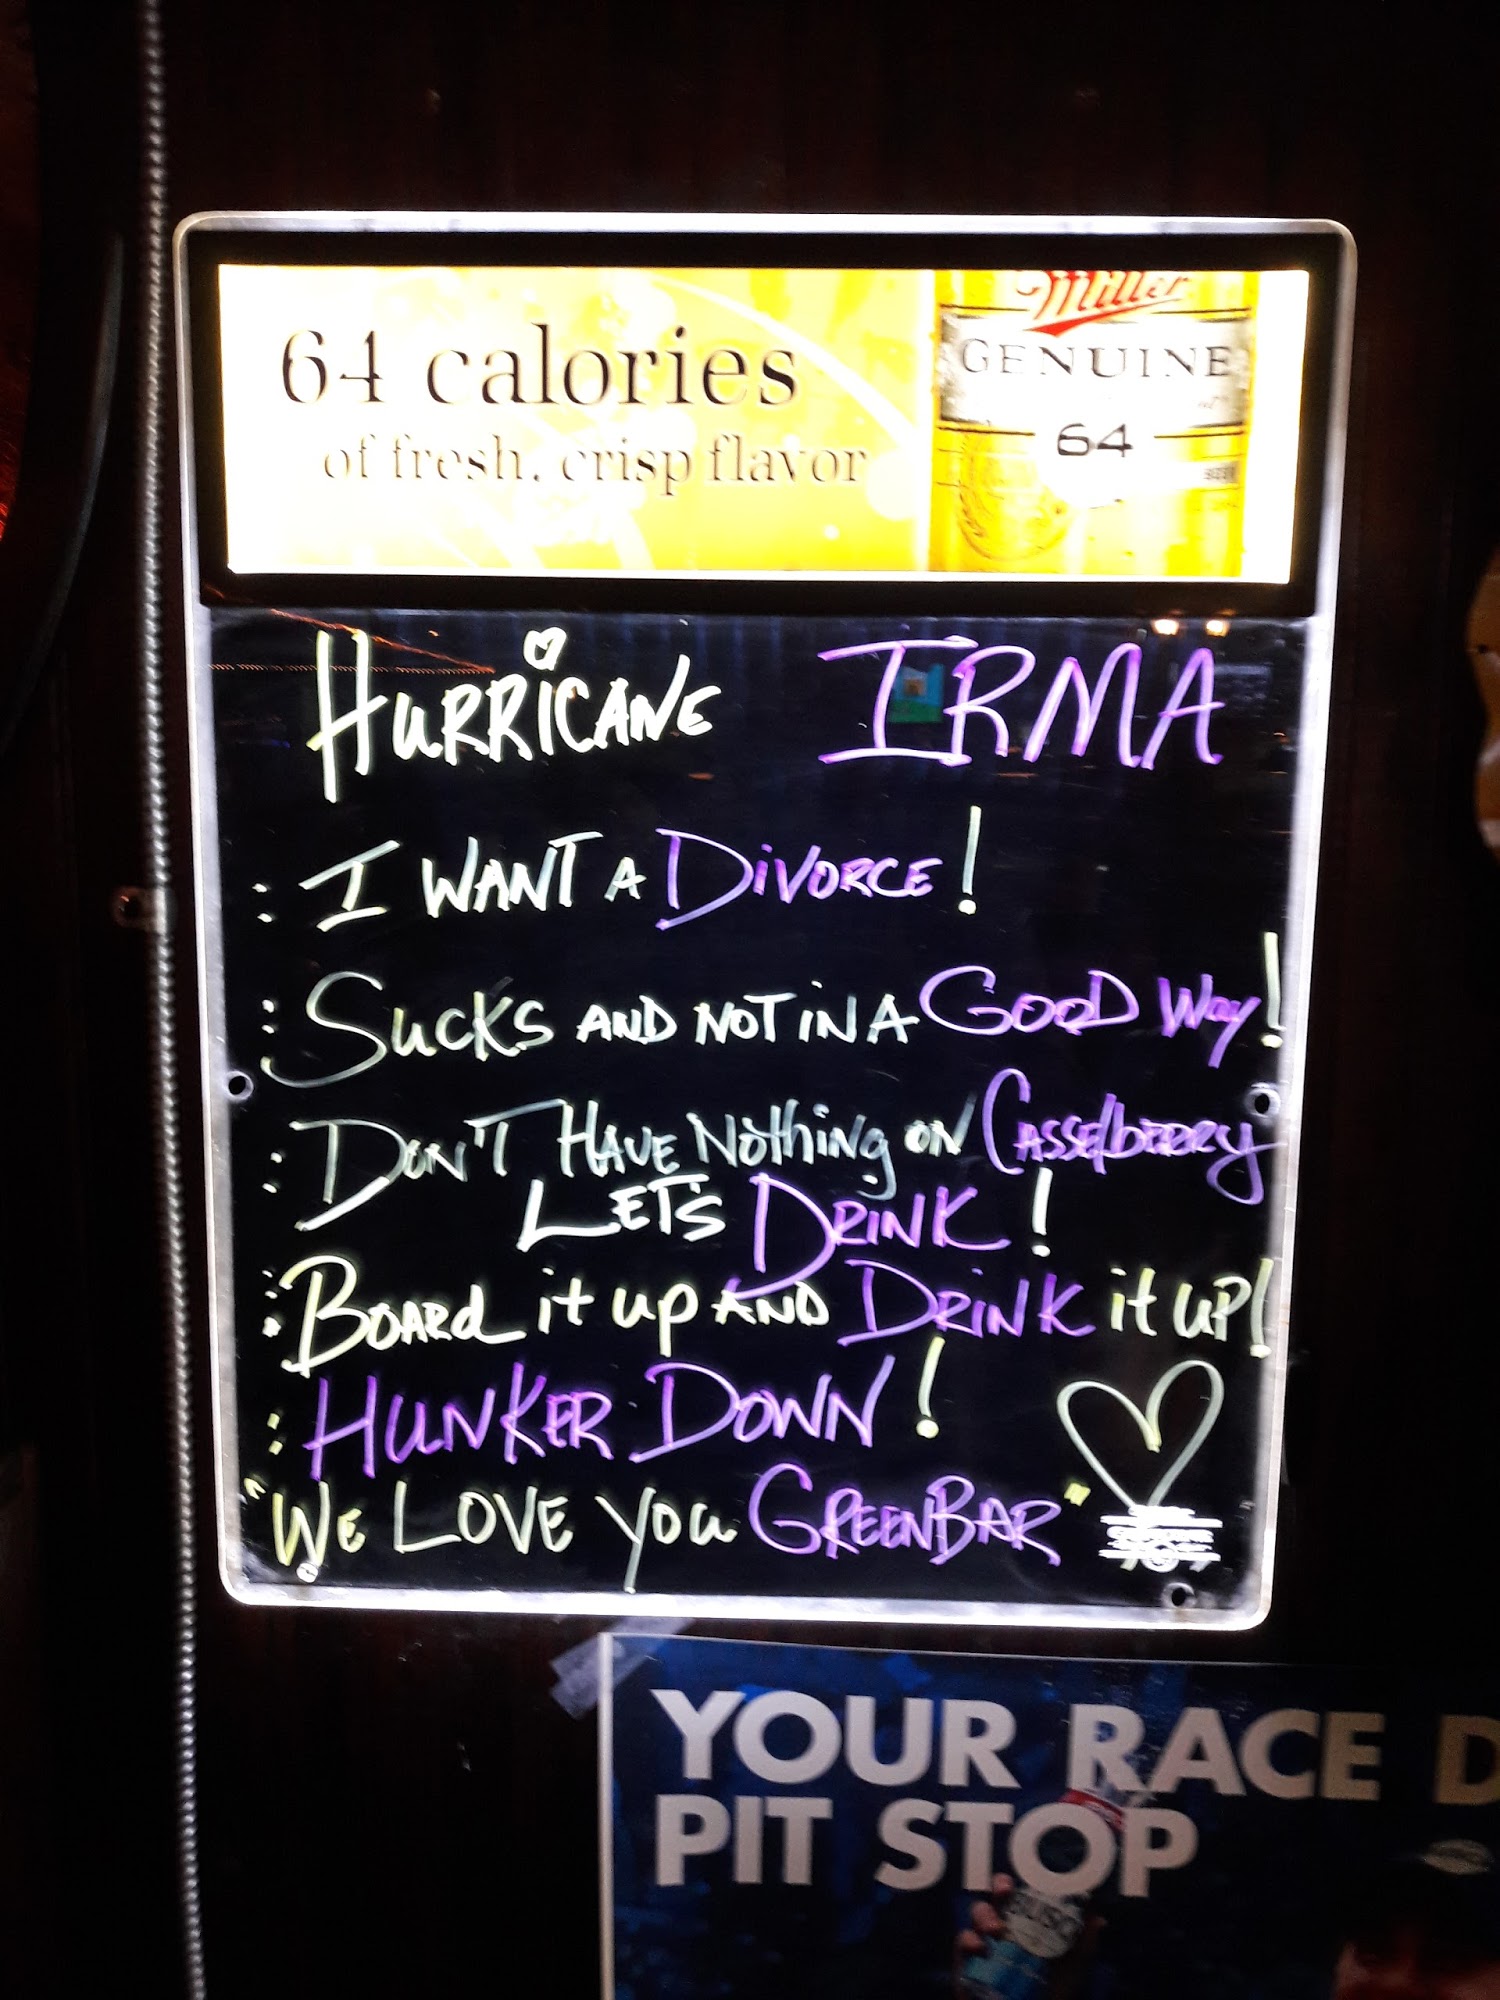 64 calories
of fresh, crisp flavor
Miller
GENUINE
64
HURRICANE IRMA
: I WANT A DIVORCE!
: SUCKS AND NOT IN A GOOD WAY!
: DON'T HAVE NOthing ON CASSELBERRY
LET'S DRINK!
: BOARd it up AND DRINK it UP!
: HUNKER DOWN!
"WE LOVE YOU GREENBAR"
YOUR RACE D
PIT STOP
BUSCH